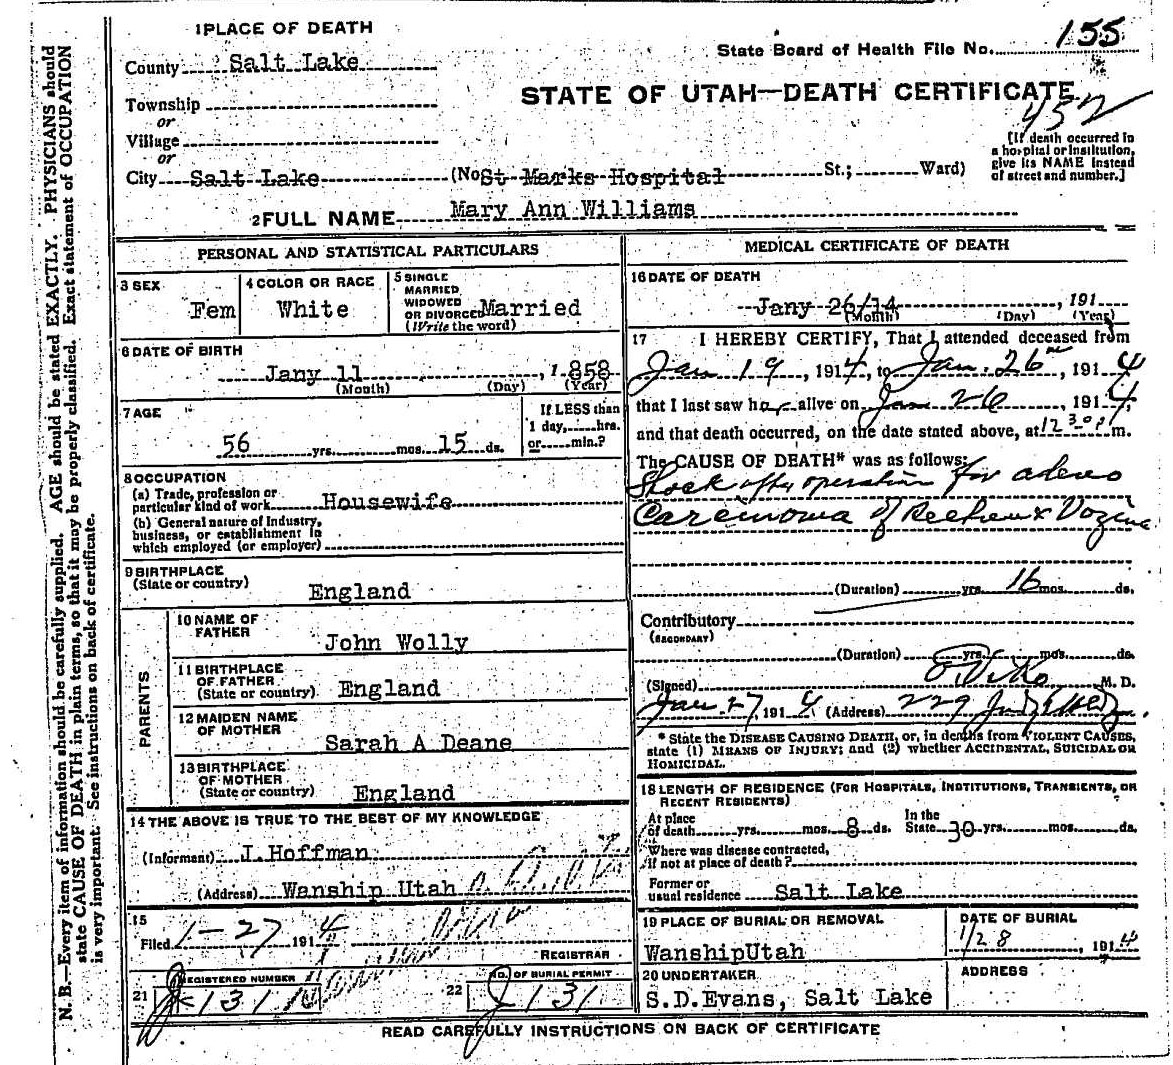 1 PLACE OF DEATH
State Board of Health File No. 155
County Salt Lake
STATE OF UTAH—DEATH CERTIFICATE
452
Township
or
Village
or
City Salt Lake (No St Marks Hospital St.; Ward)
[If death occurred in
a hospital or institution,
give its NAME instead
of street and number.]
2 FULL NAME Mary Ann Williams
PERSONAL AND STATISTICAL PARTICULARS
3 SEX
Fem
4 COLOR OR RACE
White
5 SINGLE
MARRIED
WIDOWED
OR DIVORCED Married
(Write the word)
6 DATE OF BIRTH
Jany 11, 1858
(Month) (Day) (Year)
7 AGE
56 yrs. mos. 15 ds.
If LESS than
1 day, hrs.
or min.?
8 OCCUPATION
(a) Trade, profession or
particular kind of work Housewife
(b) General nature of Industry,
business, or establishment in
which employed (or employer)
9 BIRTHPLACE
(State or country)
England
PARENTS
10 NAME OF
FATHER
John Wolly
11 BIRTHPLACE
OF FATHER
(State or country) England
12 MAIDEN NAME
OF MOTHER
Sarah A Deane
13 BIRTHPLACE
OF MOTHER
(State or country) England
14 THE ABOVE IS TRUE TO THE BEST OF MY KNOWLEDGE
(Informant) J.Hoffman
(Address) Wanship Utah
15
Filed 1-27 1914
REGISTRAR
21 REGISTERED NUMBER
131
22 NO. OF BURIAL PERMIT
131
MEDICAL CERTIFICATE OF DEATH
16 DATE OF DEATH
Jany 26/14, 191
(Month) (Day) (Year)
17 I HEREBY CERTIFY, That I attended deceased from
Jan 19, 1914, to Jan. 26, 1914
that I last saw her alive on Jan 26, 1914,
and that death occurred, on the date stated above, at 12 30 P m.
The CAUSE OF DEATH* was as follows:
Shock after operation for adeno
Carcinoma of Rectum & Vagina
(Duration) yrs. 16 mos. ds.
Contributory
(SECONDARY)
(Duration) yrs. mos. ds.
(Signed) M. D.
Jan. 27, 1914 (Address) 229 Judge Bldg.
* State the DISEASE CAUSING DEATH, or, in deaths from VIOLENT CAUSES,
state (1) MEANS OF INJURY; and (2) whether ACCIDENTAL, SUICIDAL OR
HOMICIDAL.
18 LENGTH OF RESIDENCE (FOR HOSPITALS, INSTITUTIONS, TRANSIENTS, OR
RECENT RESIDENTS)
At place
of death yrs. mos. 8 ds.
In the
State 30 yrs. mos. ds.
Where was disease contracted,
if not at place of death?
Former or
usual residence Salt Lake
19 PLACE OF BURIAL OR REMOVAL
WanshipUtah
DATE OF BURIAL
1/28, 1914
20 UNDERTAKER
S.D.Evans, Salt Lake
ADDRESS
READ CAREFULLY INSTRUCTIONS ON BACK OF CERTIFICATE
N. B.—Every item of information should be carefully supplied. AGE should be stated EXACTLY. PHYSICIANS should
state CAUSE OF DEATH in plain terms, so that it may be properly classified. Exact statement of OCCUPATION
is very important. See instructions on back of certificate.